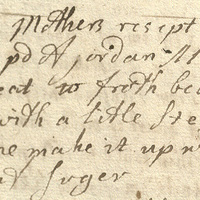 Mothers receipt
pd of jordan Al
eat to froth be
with a litle
me make it up w
nd suger